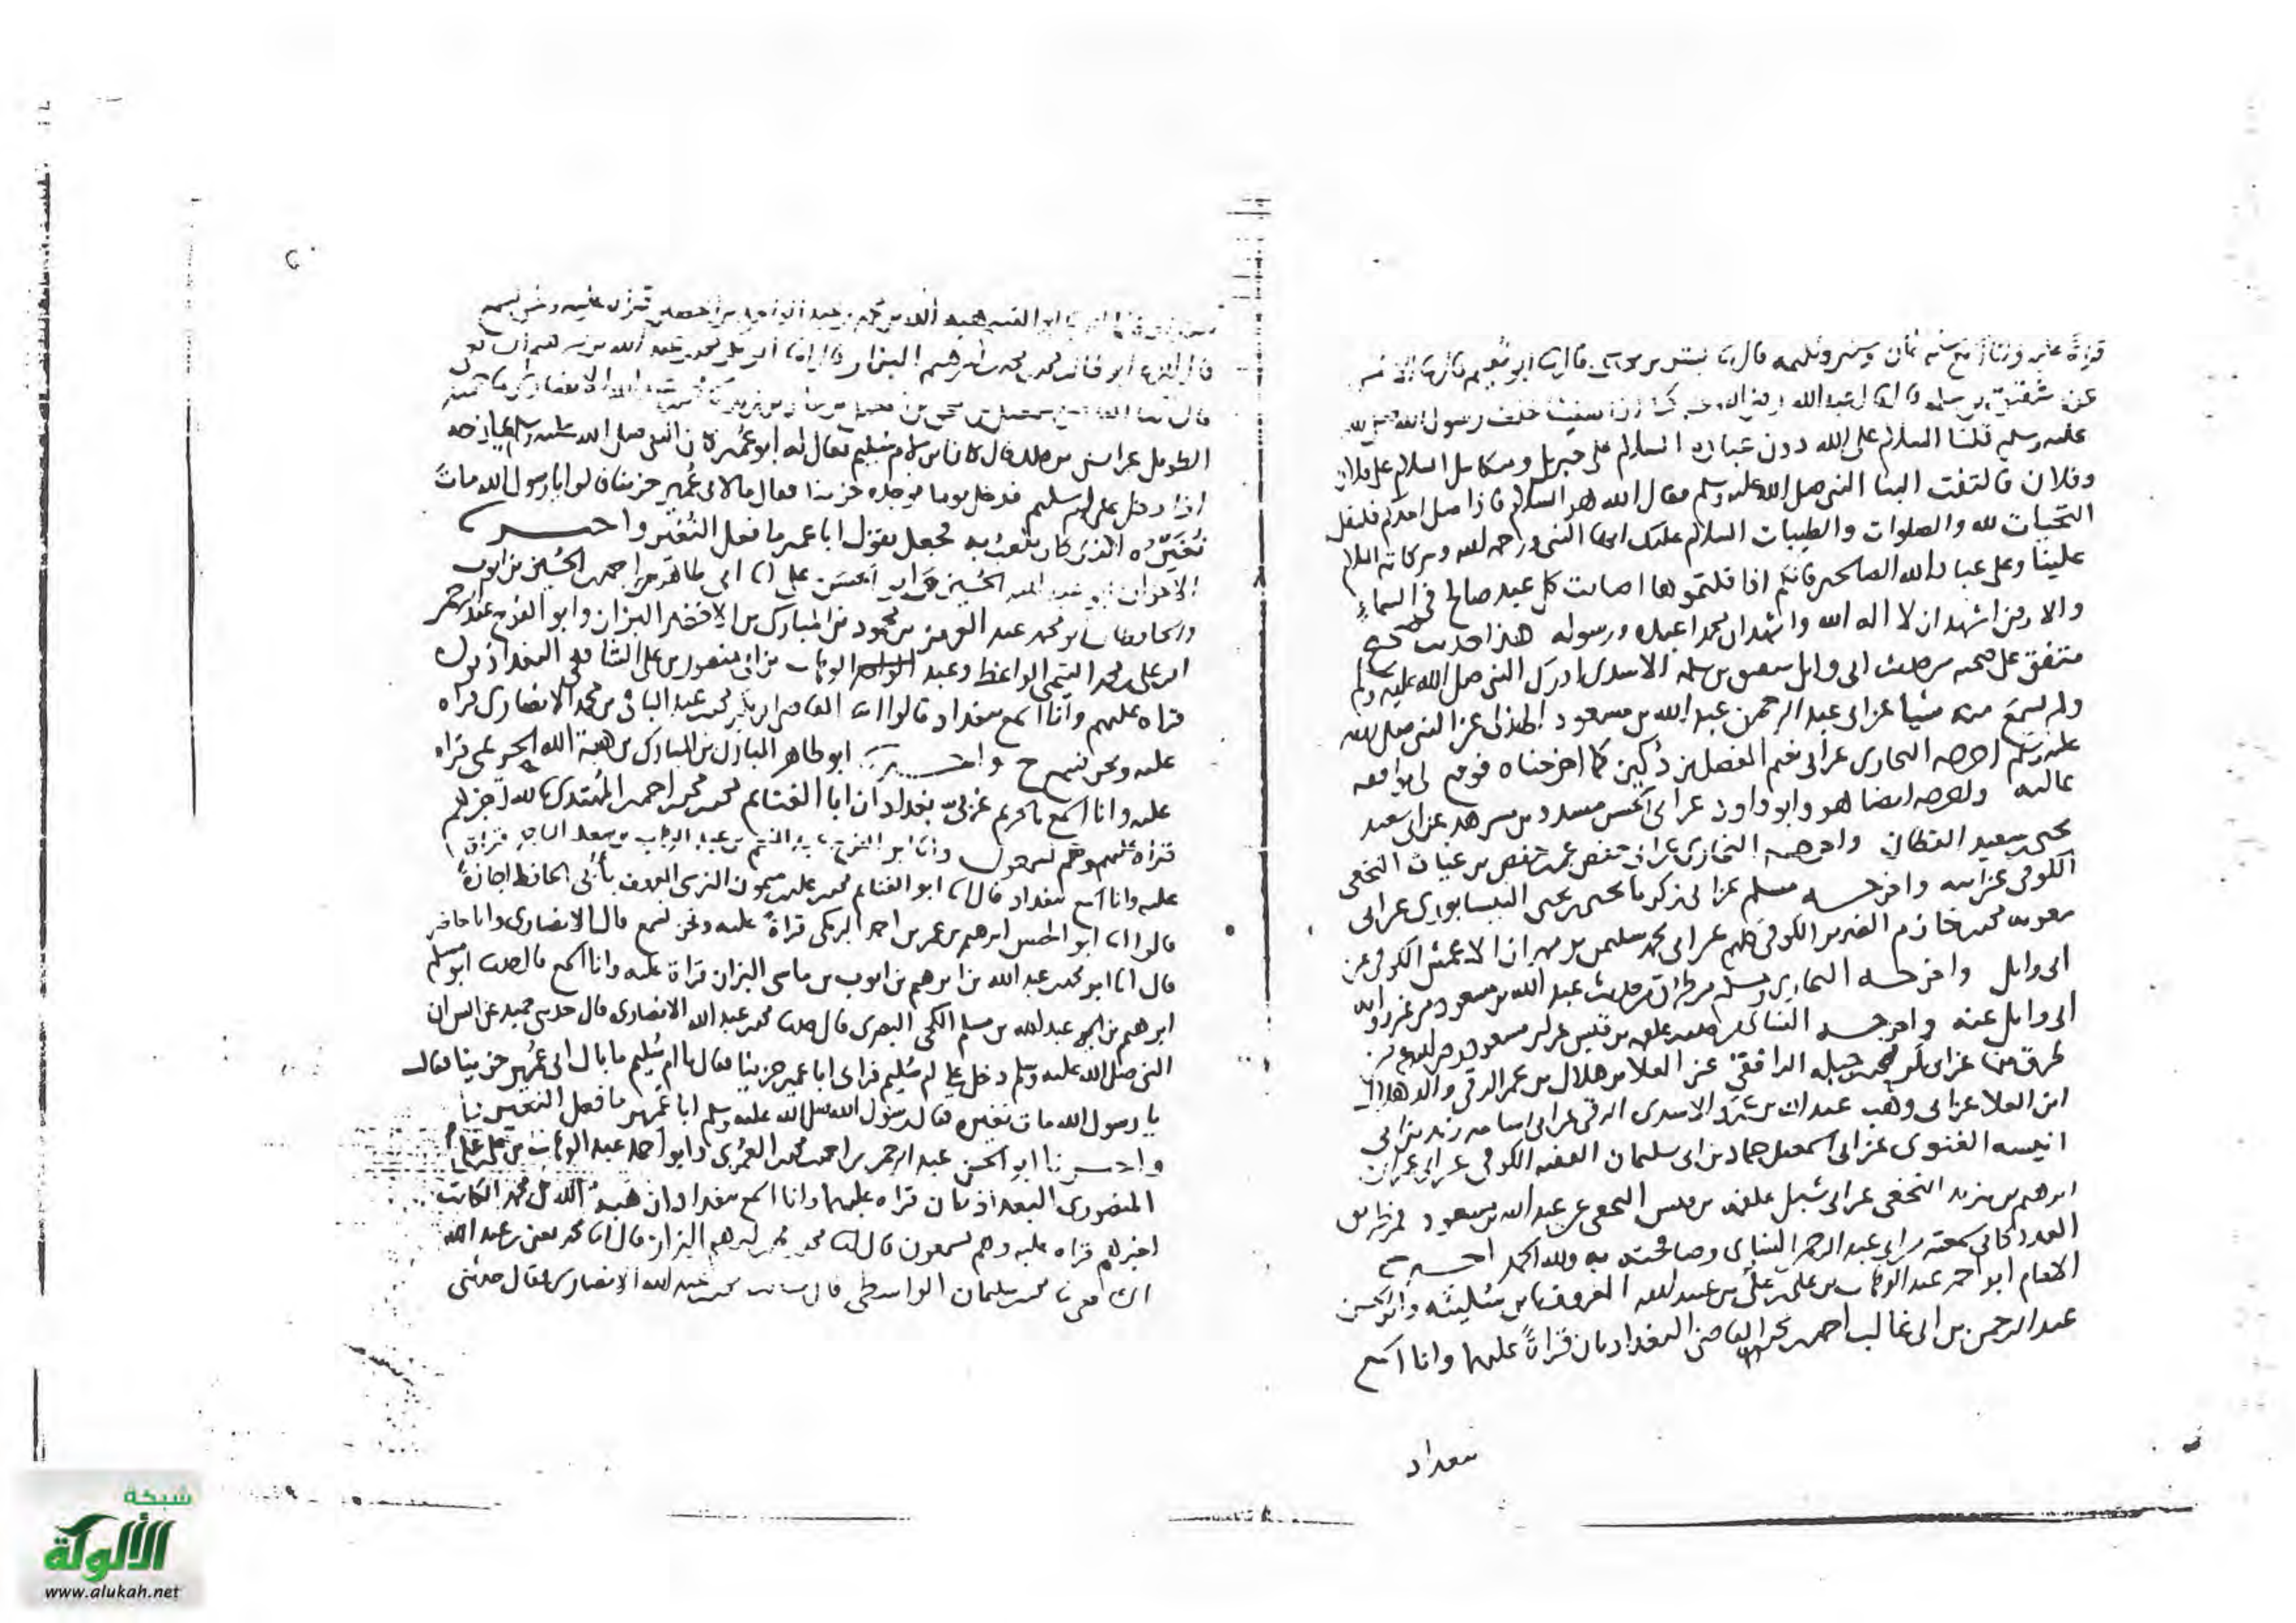 قراة عليه سنه ثمان قال ثنا بشر بن موسى قال ثنا ابو نعيم قال ثنا الاعمش
عن شقيق بن سلمه قال قال عبد الله رضي الله عنه كنا اذا صلينا خلف رسول الله صلى الله
عليه وسلم قلنا السلام على الله دون عباده السلام على جبريل وميكايل السلام على فلان
وفلان فالتفت الينا النبي صلى الله عليه وسلم فقال الله هو السلام فاذا صلى احدكم فليقل
التحيات لله والصلوات والطيبات السلام عليك ايها النبي ورحمه الله وبركاته السلام
علينا وعلى عباد الله الصالحين فانكم اذا قلتموها اصابت كل عبد صالح في السماء
والارض اشهد ان لا اله الا الله واشهد ان محمدا عبده ورسوله هذا حديث صحيح
متفق على صحته من حديث ابي وايل شقيق بن سلمه الاسدي ادرك النبي صلى الله عليه وسلم
ولم يسمع منه شيا عن ابي عبد الرحمن عبد الله بن مسعود الهذلي عن النبي صلى الله
عليه وسلم اخرجه البخاري عن ابي نعيم الفضل بن دكين كما اخرجناه فوقع لي موافقه
عاليه واخرجه ايضا هو وابو داود عن ابي الحسن مسدد بن مسرهد عن ابي سعيد
يحيى بن سعيد القطان واخرجه البخاري عن ابي حفص عمر بن حفص بن غياث النخعي
الكوفي عن ابيه واخرجه مسلم عن ابي زكريا يحيى بن يحيى النيسابوري عن ابي
معويه محمد بن خازم الضرير الكوفي كلهم عن ابي محمد سليمن بن مهران الاعمش الكوفي عن
ابي وايل واخرجه البخاري ومسلم من طرق من حديث عبد الله بن مسعود من غير روايه
ابي وايل عنه واخرجه النسائي من حديث علقمه بن قيس عن ابن مسعود رضي الله عنه من
طرق منها عن ابي بكر محمد بن جبله الرافقي عن العلا بن هلال بن عمر الرقي والد هلال
ابن العلا عن ابي وهب عبيد الله بن عمرو الاسدي الرقي عن ابي اسامه زيد بن ابي
انيسه الغنوي عن ابي اسمعيل حماد بن ابي سليمان الفقيه الكوفي عن ابي عمران
ابرهيم بن يزيد النخعي عن ابي شبل علقمه بن قيس النخعي عن عبد الله بن مسعود فمن طريق
العدد كاني سمعته من ابي عبد الرحمن النسائي وصافحته به ولله الحمد اخبرنا
الامام ابو احمد عبد الوهاب بن علي بن علي بن عبيد الله المعروف بابن سكينه وابو الحسن
عبد الرحمن بن ابي غالب احمد بن محمد القاضي البغداديان قراة عليهما وانا اسمع
ببغداد
ابو القسم هبه الله بن محمد بن عبد الواحد بن الحصين قراة عليه ونحن نسمع
قال انا ابو طالب محمد بن محمد بن ابرهيم البزاز قال انا ابو بكر محمد بن عبد الله بن ابرهيم الشافعي
قال ثنا القاضي اسمعيل بن اسحق بن اسمعيل بن حماد بن زيد ثنا محمد بن عبد الله الانصاري ثنا حميد
الطويل عن انس بن ملك قال كان ابن لام سليم يقال له ابو عمير كان النبي صلى الله عليه وسلم يمازحه
اذا دخل على ام سليم فدخل يوما فوجده حزينا فقال ما لابي عمير حزينا قالوا يا رسول الله مات
نغيره الذي كان يلعب به فجعل يقول ابا عمير ما فعل النغير واخبرنا
الاخوان ابو عبد الله الحسين بن ابي طاهر بن احمد الحسين بن ايوب
والحافظ ابو محمد عبد العزيز بن محمود بن المبارك بن الاخضر البزاز وابو الفرج عبد الرحمن
ابن علي بن محمد التيمي الواعظ وعبد الوهاب بن ابي منصور بن علي الشافعي البغداذيون
قراه عليهم وانا اسمع ببغداد قالوا انا القاضي ابو بكر محمد بن عبد الباقي بن محمد الانصاري قراه
عليه ونحن نسمع ح واخبرنا ابو طاهر المبارك بن المبارك بن هبة الله الحريمي قراه
عليه وانا اسمع بالحريم غربي بغداد ان ابا الغنايم محمد بن محمد بن احمد المهتدي بالله اخبرهم
قراة عليهم وهم يسمعون وانا ابو الفرج عبد المنعم بن عبد الوهاب بن سعد قراة
عليه وانا اسمع ببغداد قال انا ابو الغنايم محمد بن علي بن ميمون النرسي المعروف بابي الحافظ اجازة
قالوا انا ابو اسحق ابرهيم بن عمر بن احمد البرمكي قراة عليه ونحن نسمع قال الانصاري وانا حاضر
قال انا ابو محمد عبد الله بن ابرهيم بن ايوب بن ماسي البزاز قراة عليه وانا اسمع قال ثنا ابو مسلم
ابرهيم بن عبد الله بن مسلم الكجي البصري قال ثنا محمد بن عبد الله الانصاري قال حدثني حميد عن انس ان
النبي صلى الله عليه وسلم دخل على ام سليم فراى ابا عمير حزينا فقال يا ام سليم ما بال ابي عمير حزينا فقالت
يا رسول الله مات نغيره فقال رسول الله صلى الله عليه وسلم ابا عمير ما فعل النغير
واخبرنا ابو الحسن عبد الرحمن بن احمد بن محمد العمري وابو احمد عبد الوهاب بن علي بن علي
المنصوري البغداذيان قراه عليهما وانا اسمع ببغداد ان هبه الله بن محمد الكاتب
اخبرهم قراه عليه وهم يسمعون قال انا محمد بن محمد بن ابرهيم البزاز قال انا محمد يعني بن عبد الله
الشافعي ثنا محمد بن سليمان الواسطي قال ثنا محمد بن عبد الله الانصاري قال حدثني
شبكة
الألوكة
www.alukah.net